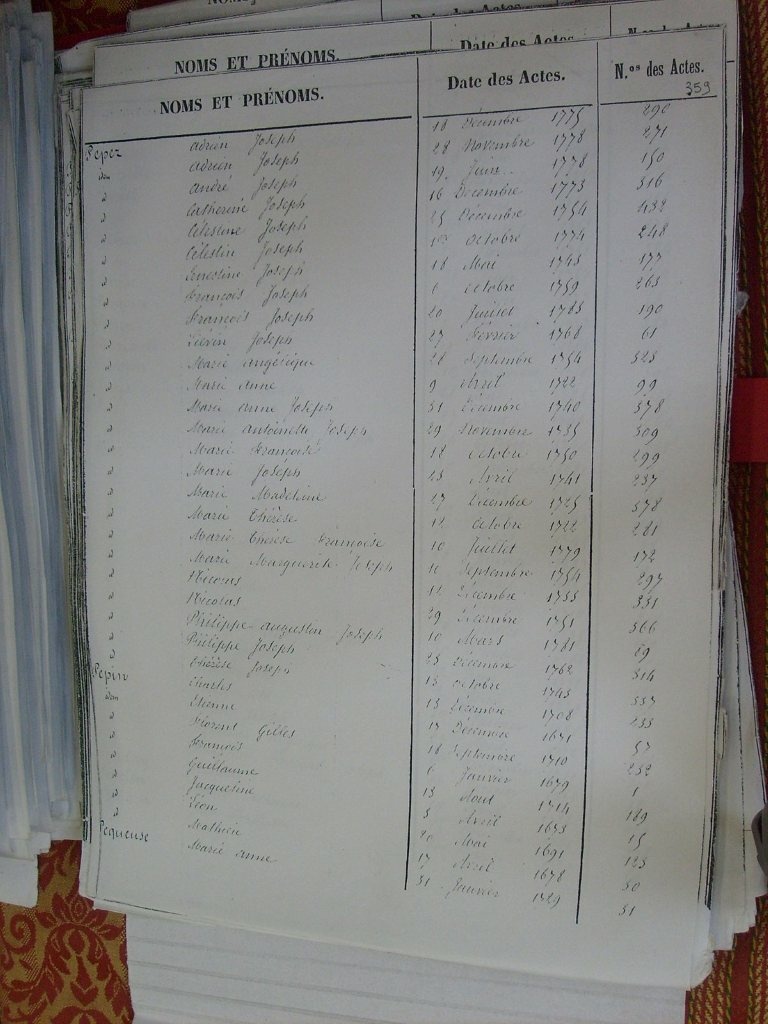 NOMS ET PRÉNOMS.
Date des Actes.
NOMS ET PRÉNOMS. Date des Actes. N.os des Actes.
359
Pepez Adrien Joseph 18 Décembre 1775 290
idem Adrien Joseph 28 Novembre 1778 271
d André Joseph 19 Juin 1778 150
d Catherine Joseph 16 Décembre 1773 316
d Célestine Joseph 25 Décembre 1754 432
d Célestin Joseph 1er Octobre 1774 248
d Ernestine Joseph 18 Mai 1743 177
d François Joseph 6 Octobre 1759 263
d François Joseph 20 Juillet 1785 190
d Liévin Joseph 27 Février 1768 61
d Marie Angélique 28 Septembre 1754 323
d Marie Anne 9 Avril 1722 99
d Marie Anne Joseph 31 Décembre 1740 378
d Marie Antoinette Joseph 29 Novembre 1735 309
d Marie Françoise 18 Octobre 1750 299
d Marie Joseph 23 Avril 1741 237
d Marie Madeleine 27 Décembre 1725 378
d Marie Thérèse 12 Octobre 1722 281
d Marie Thérèse Françoise 10 Juillet 1779 172
d Marie Marguerite Joseph 10 Septembre 1754 297
d Nicolas 12 Décembre 1733 331
d Nicolas 29 Décembre 1751 366
d Philippe Augustin Joseph 10 Mars 1781 29
d Philippe Joseph 23 Décembre 1762 314
d Thérèse Joseph 13 Octobre 1743 337
Pepin Charles 13 Décembre 1708 233
idem Etienne 17 Décembre 1671 57
d Florent Gilles 18 Septembre 1710 232
d François 6 Janvier 1679 1
d Guillaume 13 Aout 1714 189
d Jacqueline 3 Avril 1673 15
d Léon 20 Mai 1691 123
d Mathieu 17 Avril 1678 30
Pequeuse Marie Anne 31 Janvier 1729 31